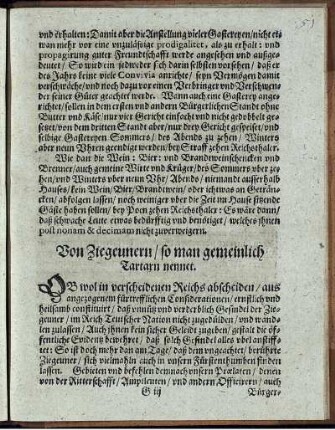 51
und erhalten: Damit aber die Anstellung vieler Gastereyen / nicht etwan
mehr vor eine unzulässige prodigalitet, als zu erhalt: und
propagirung guter Freundschafft werde angesehen und außgedeutet /
So wird ein jedweder sich darin selbsten vorsehen / daß er
des Jahrs keine viele Convivia anrichte / seyn Vermögen damit
verschwäche / und noch dazu vor einen Verbringer und Verschwender
seiner Güter geachtet werde. Wann auch eine Gasterey angerichtet /
sollen in dem ersten und andern Bürgerlichen Standt ohne
Butter und Käse / nur vier Gericht einfacht und nicht gedobbelt gesetzet /
von dem dritten Standt aber / nur drey Gericht gespeiset / und
selbige Gastereyen Sommers / des Abends zu zehen / Winters
aber neun Uhren geendigt werden / bey Straff zehen Reichsthaler.
Wie dan die Wein: Bier: und Brandtweinschencken und
Brenner / auch gemeine Wirte und Krüger / des Sommers uber zehen /
und Winters uber neun Uhr / Abends / niemandt ausserhalb
Hauses / kein Wein / Bier / Brandtwein / oder ichtwas an Geträncken /
abfolgen lassen / noch weiniger uber die Zeit im Hause sitzende
Gäste haben sollen / bey Poen zehen Reichsthaler: Es wäre dann /
daß schwache Leute etwas bedürfftig und benötiget / welches ihnen
post nonam & decimam nicht zuverweigern.
Von Ziegeunern / so man gemeinlich
Tartarn nennet.
OB wol in verscheidenen Reichs abscheiden / aus
angezogenem fürtrefflichen Considerationen / ernstlich und
heilsamb constituirt / daß unnütz und verderblich Gesindel der Ziegeuner /
im Reich Teutscher Nation nicht zugedülden / und wandelen
zulassen / Auch ihnen kein sicher Geleidt zugeben / gestalt die offentliche
Evidentz bewehret / daß solch Gesindel alles ubel anstifftet:
So ist doch mehr dan am Tage / daß dem ungeachtet / berührte
Ziegeuner / sich vielmahln auch in unsern Fürstenthumben finden
lassen. Gebieten und befehlen demnach unsern Praelaten / denen
von der Ritterschafft / Amptleuten / und andern Officirern / auch
G iij Bürger-